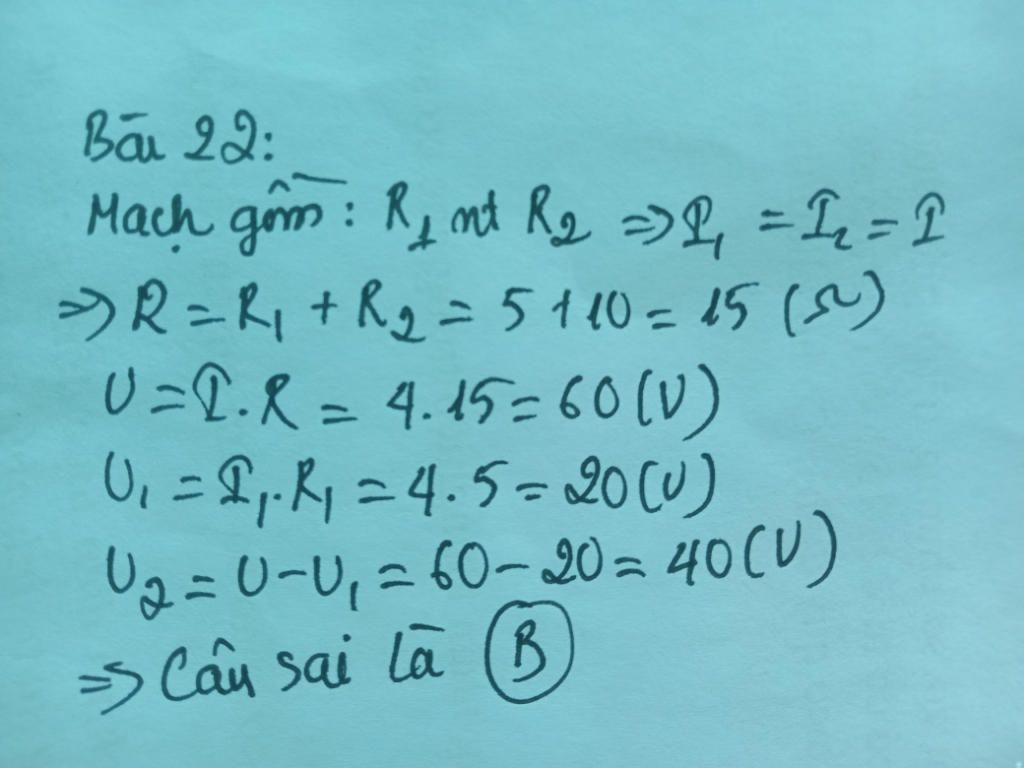 Bài 22:
Mạch gồm: R₁ nt R₂ => I₁ = I₂ = I
=> R = R₁ + R₂ = 5 + 10 = 15 (Ω)
U = I.R = 4.15 = 60 (V)
U₁ = I₁.R₁ = 4.5 = 20 (V)
U₂ = U - U₁ = 60 - 20 = 40 (V)
=> Câu sai là B